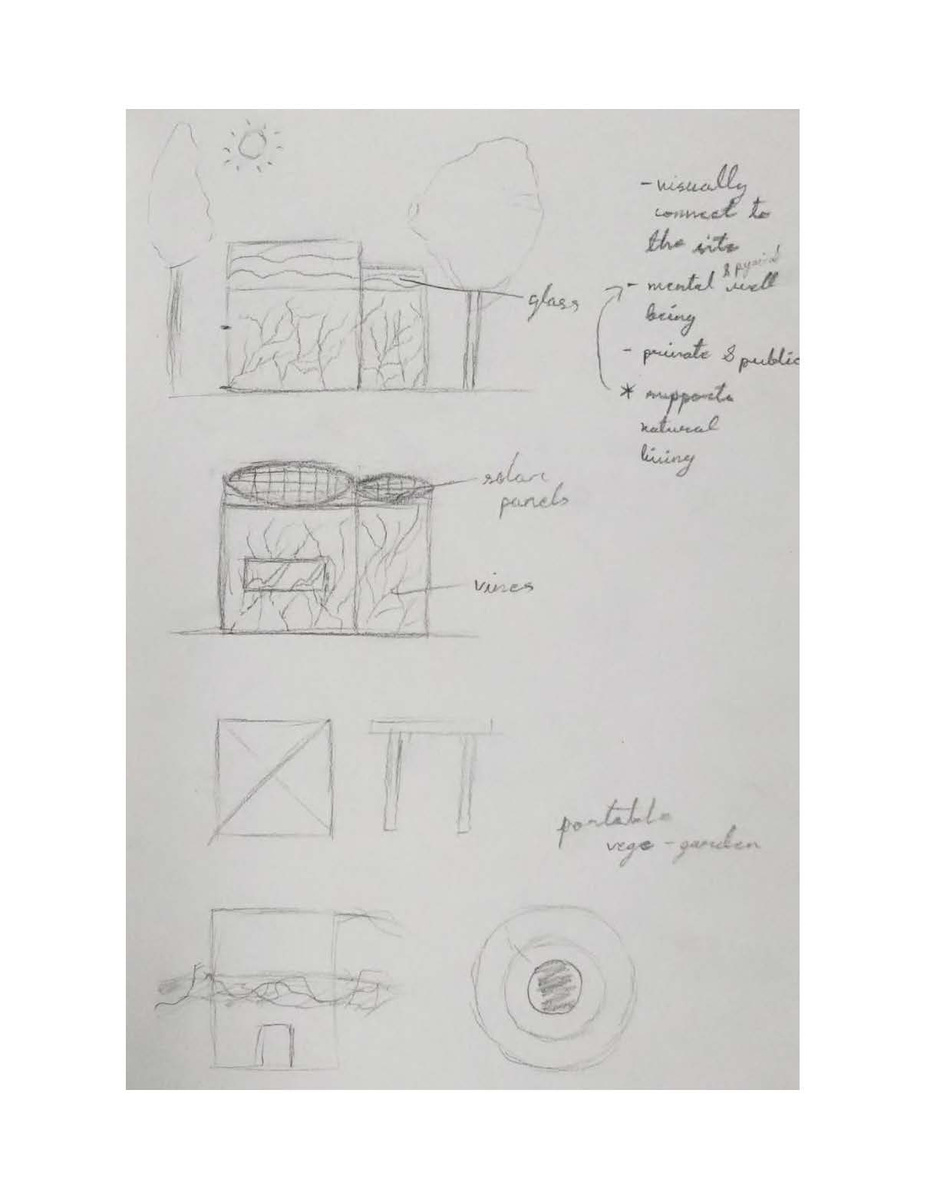 - visually
connect to
the site
&
- mental well
being
- private & public
* supports
natural
living
glass
solar
panels
vines
portable
vege - garden